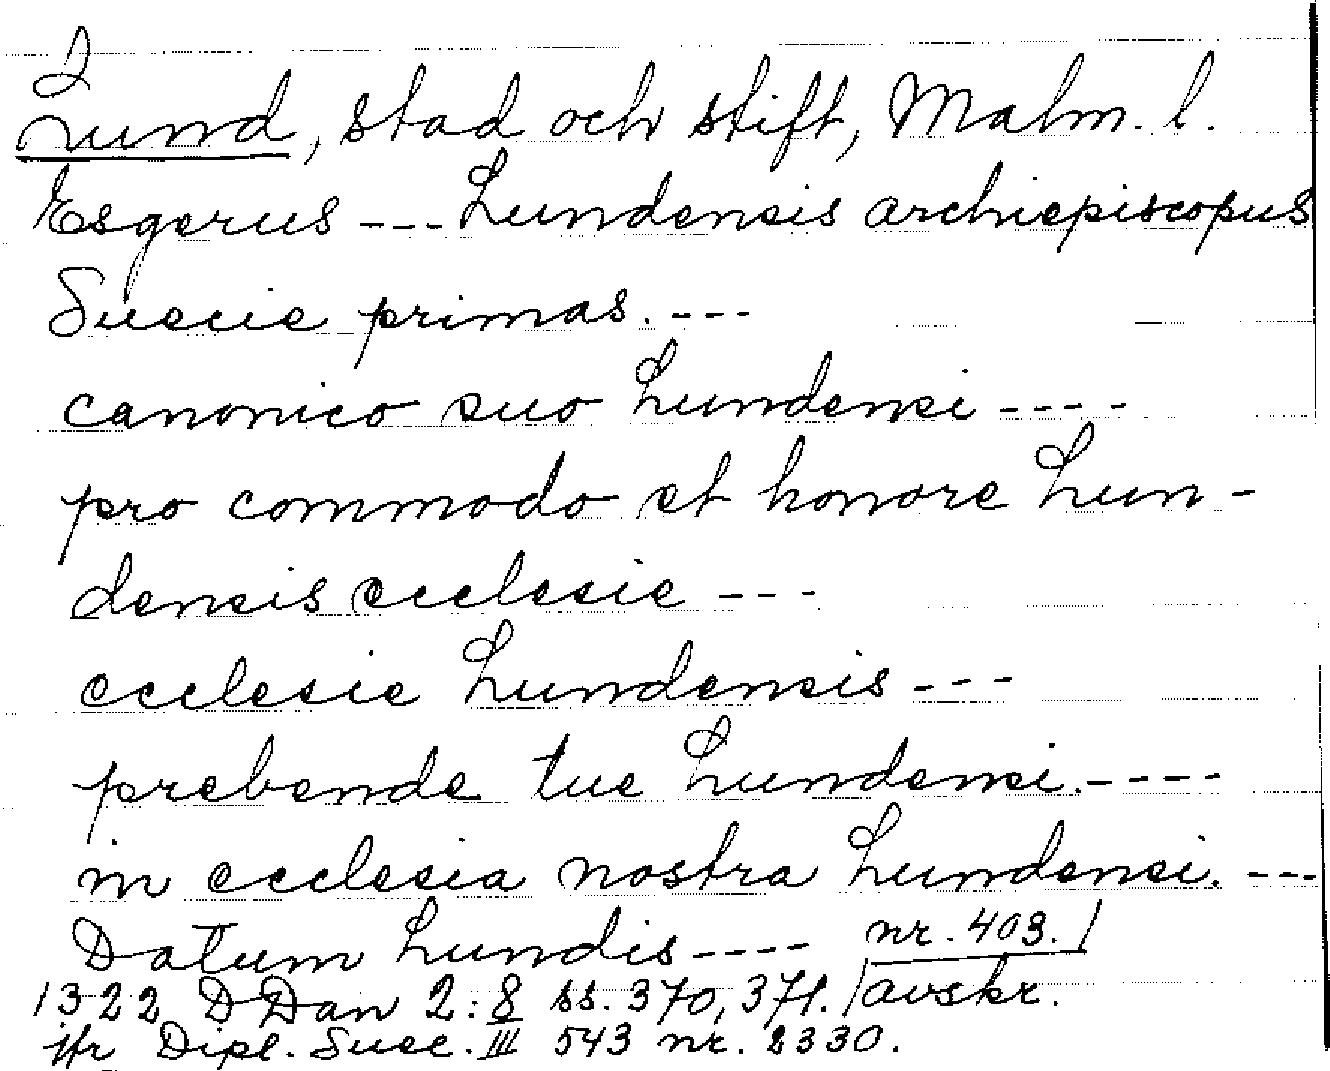 Lund, stad och stift, Malm. l.
Esgerus --- Lundensis archiepiscopus
Suecie primas. ---
canonico suo Lundensi ----
pro commodo et honore Lun-
densis ecclesie ---
ecclesie Lundensis ---
prebende tue Lundensi. ----
in ecclesia nostra Lundensi. ---
Datum Lundis ---- nr. 403. /
1322 DDan 2:8 ss. 370, 371. / avskr.
jfr Dipl. Suec. III 543 nr. 2330.